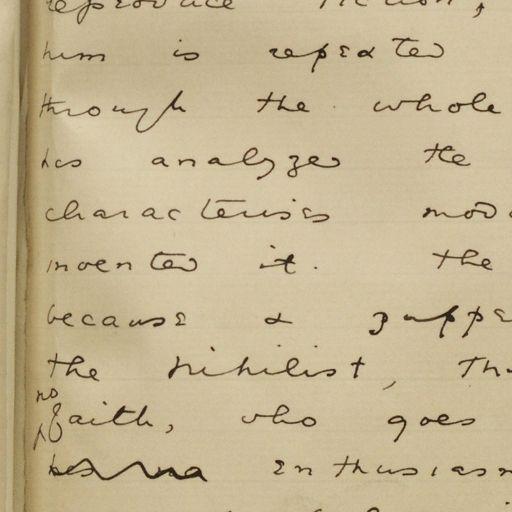 reproduce fiction,
him is repeated
through the whole
has analyzed the
characterises mod
invented it. the
because a puppe
the Nihilist, th
no
faith, who goes
enthusiasm